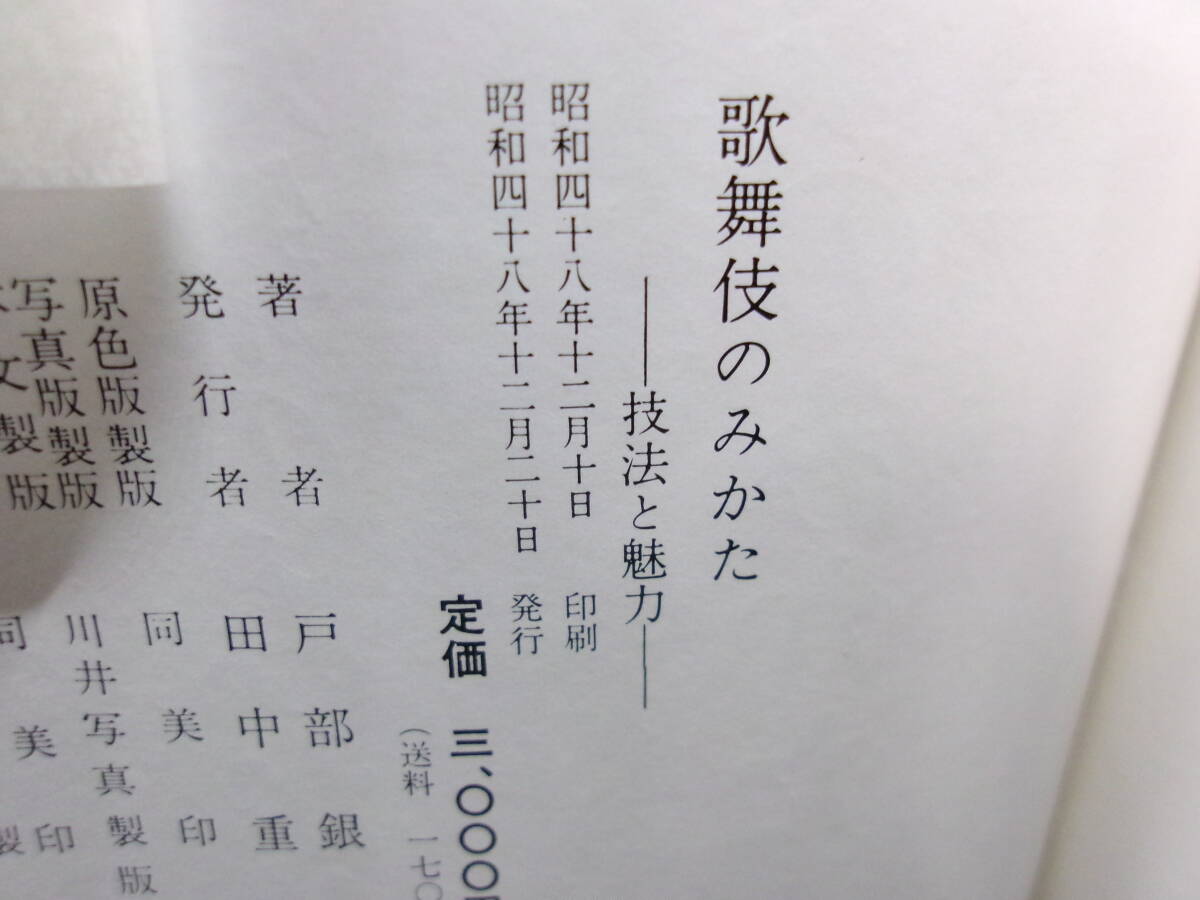 歌舞伎のみかた
――技法と魅力――
昭和四十八年十二月十日 印刷
昭和四十八年十二月二十日 発行
定価 三、〇〇〇円
(送料 一七〇
著者 戸部銀
発行者 田中重
原色版製版 同美印
写真版製版 川井写真製版
文製版 同美印
製